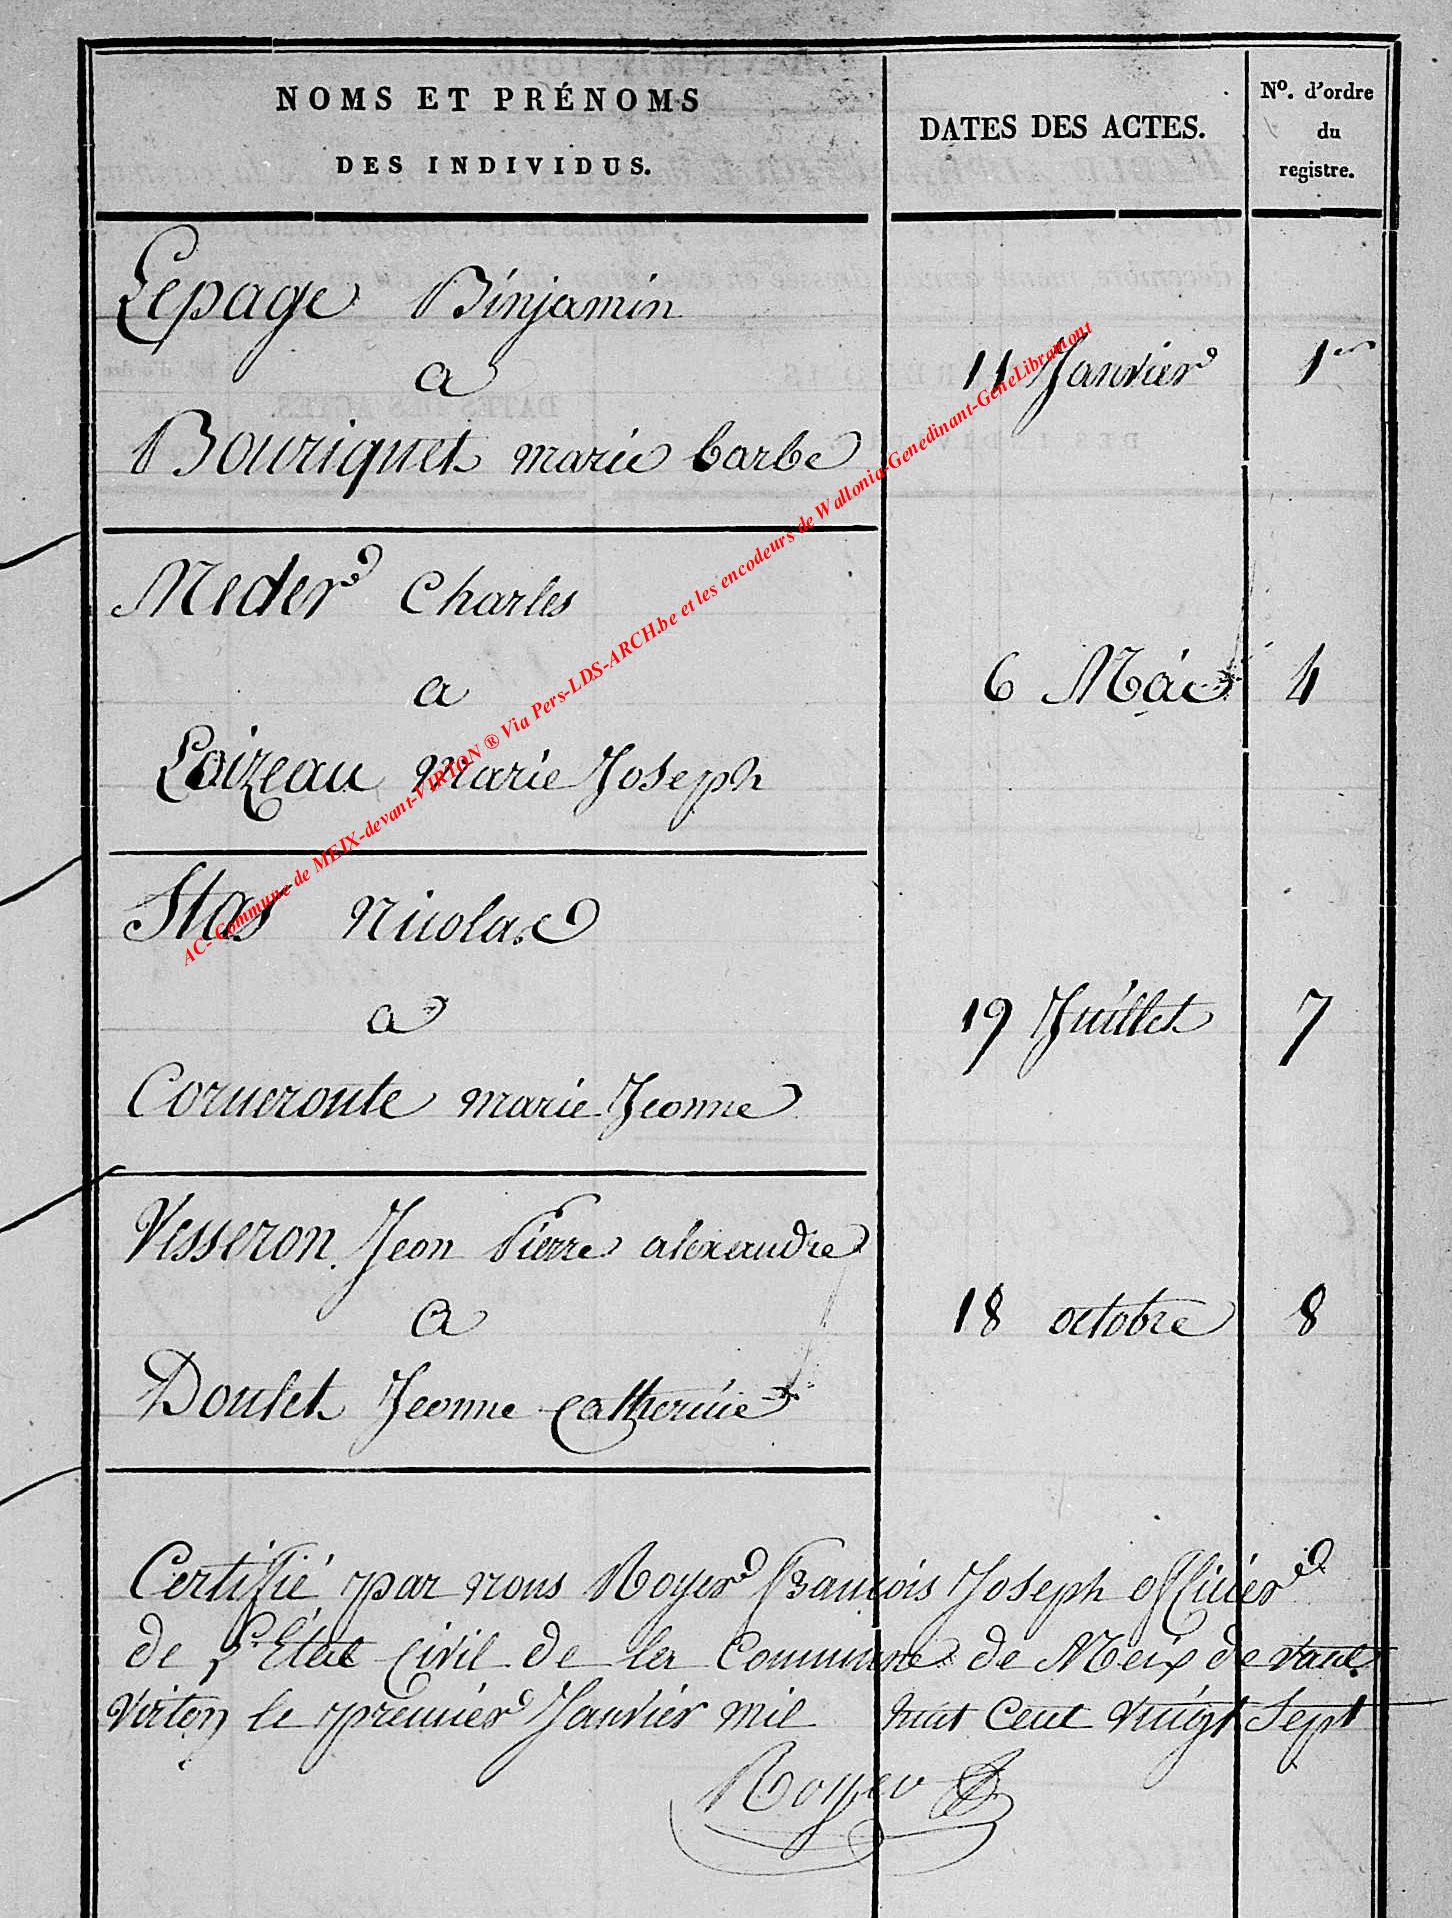 NOMS ET PRÉNOMS
DES INDIVIDUS.
DATES DES ACTES.
Nº. d'ordre
du
registre.
Lepage Binjamin
a
Bouriquet marie barbe
11 Janvier
1er
Meder Charles
a
Loizeau Marie Joseph
6 Mai
4
Stas Nicolas
a
Corneroute marie Jeonne
19 Juillet
7
Visseron Jeon Pierre alexandre
a
Doulet Jeonne Catherine
18 octobre
8
Certifié par nous Royer François Joseph officier
de l'Etat Civil de la Commune de Meix devant
Virton le premier Janvier mil huit Cent vingt Sept
Royer
AC- Commune de MEIX-devant-VIRTON ® Via Pers-LDS-ARCH.be et les encodeurs de Wallonia-Genedinant-GeneLibramont